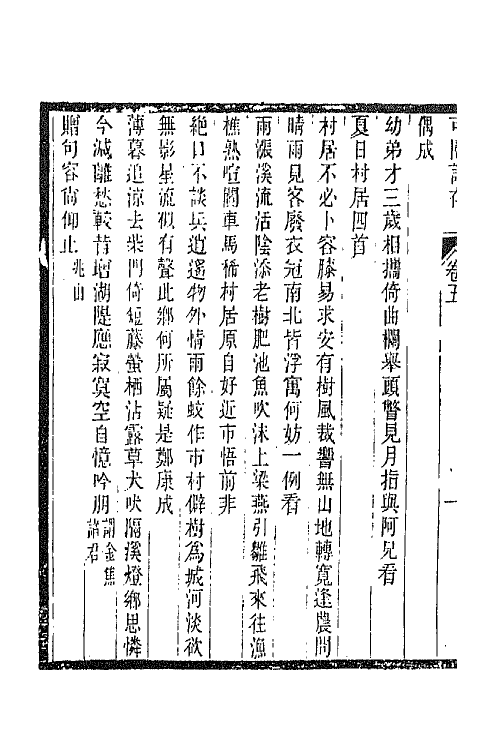 卷五
偶成
幼弟才三歲相攜倚曲欄舉頭瞥見月指與阿兄看
夏日村居四首
村居不必卜容膝易求安有樹風裁響無山地轉寬逢農問
晴雨見客廢衣冠南北皆浮寓何妨一例看
雨漲溪流活陰添老樹肥池魚吹沫上梁燕引雛飛來往漁
樵熟喧闐車馬稀村居原自好近市悟前非
絕口不談兵逍遙物外情雨餘蚊作市村僻樹為城河淡欲
無影星流似有聲此鄉何所屬疑是鄭康成
薄暮追涼去柴門倚短藤螢栖沾露草犬吠隔溪燈鄉思憐
今減離愁較昔增湖隄應寂寞空自憶吟朋謂金焦諸君
贈句容尚仰止兆山